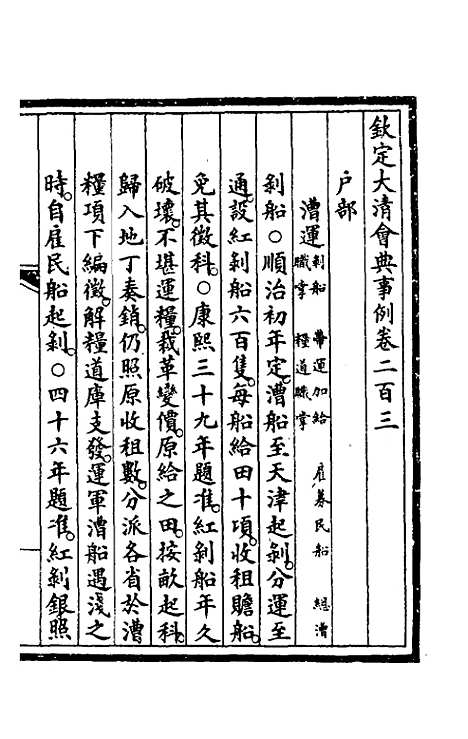 欽定大清會典事例卷二百三
戶部
漕運 剝船 帶運加給 雇募民船 總漕
職掌 糧道職掌
剝船○順治初年定。漕船至天津起剝。分運至
通。設紅剝船六百隻。每船給田十頃。收租贍船。
免其徵科。○康熙三十九年題准。紅剝船年久
破壞。不堪運糧。裁革變價。原給之田。按畝起科。
歸入地丁奏銷。仍照原收租數。分派各省於漕
糧項下編徵。解糧道庫支發。運軍漕船遇淺之
時。自雇民船起剝。○四十六年題准。紅剝銀照